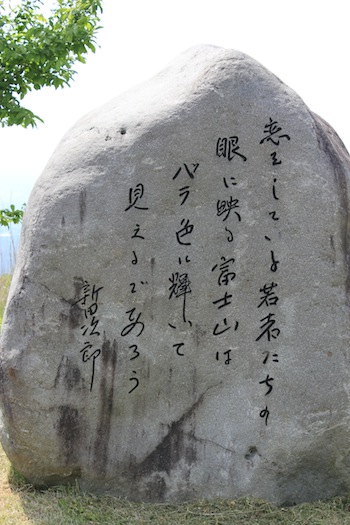 恋をしている若者たちの
眼に映る富士山は
バラ色に輝いて
見えるであろう
新田次郎